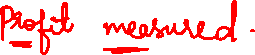 Profit measured.